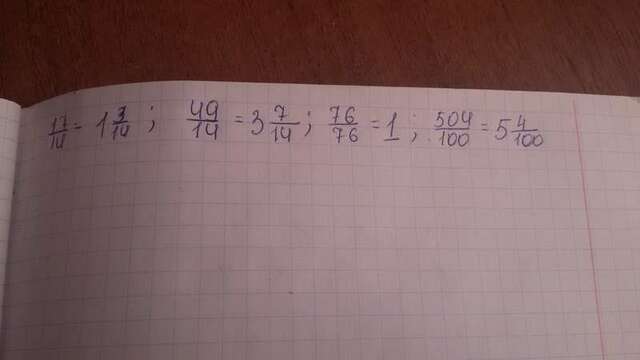 17/14 = 1 3/14 ; 49/14 = 3 7/14 ; 76/76 = 1 ; 504/100 = 5 4/100